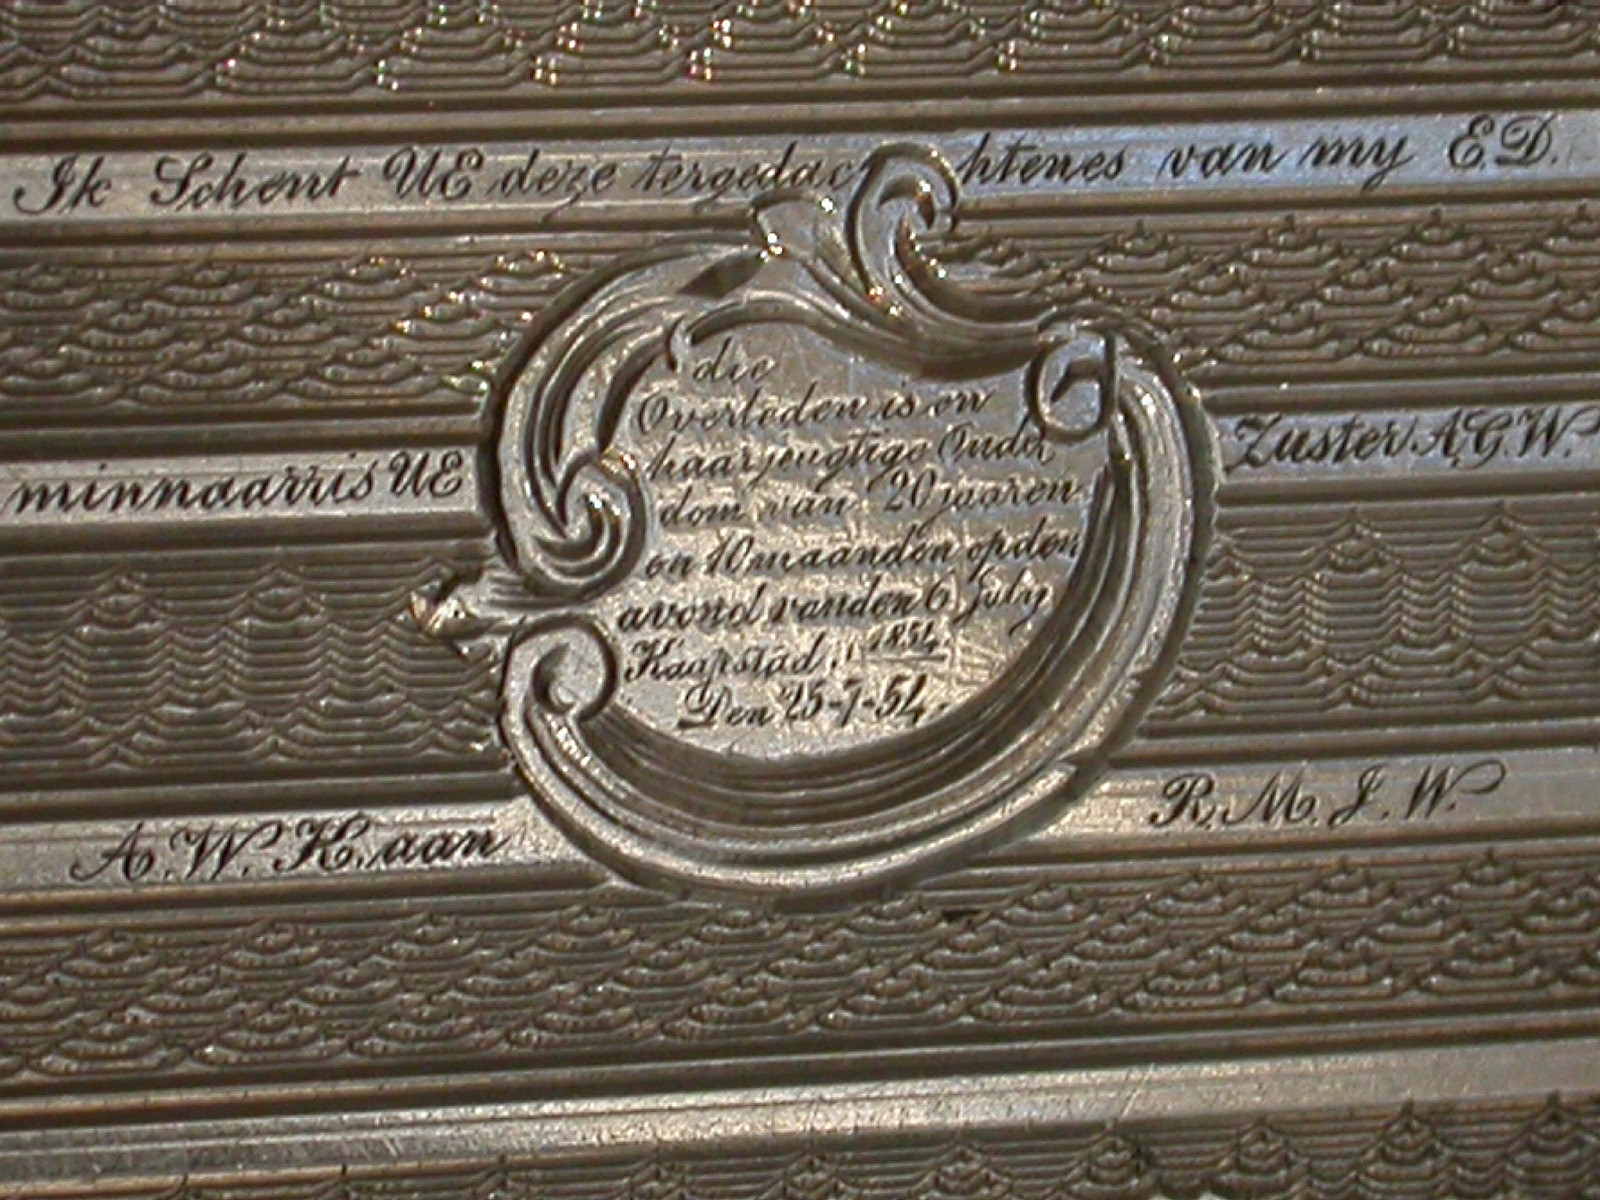 Ik Schent UE deze tergedachtenes van my E.D.
minnaarris UE Zuster A.G.W.
die
Overleden is en
haar jeugtige Ouder
dom van 20 jaaren
en 10 maanden op den
avond van den 6 July
Kaapstad, 1854.
Den 25-7-54.
A.W. Haan R.M.J.W.